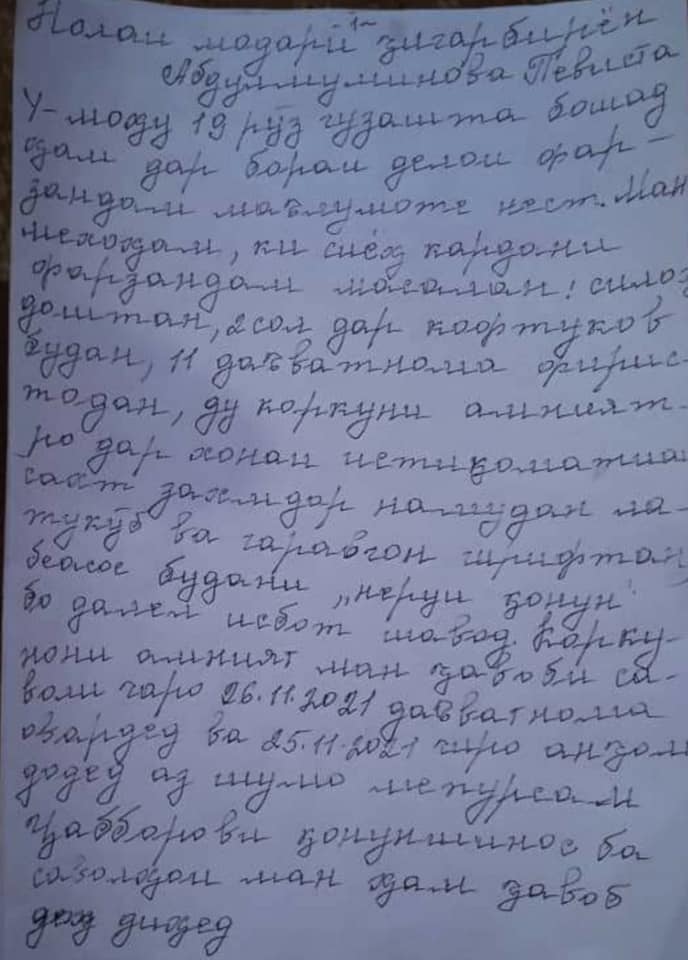 Нолаи модари зигарбирён
-1~
Абдулмуминова Певиста
У-моҳу 19 рӯз гузашта бошад
ҳам дар бораи делои фар-
зандам маълумоте нест. Ман
мехоҳам, ки сиёҳ кардани
фарзандам масалан: силоҳ
доштан, 2 сол дар кофтуков
будан, 11 даъватнома фирис-
тодан, ду коркуни амният-
ро дар хонаи истиқоматиа
сахт захмдор намудан ла-
ту кӯб ва гаравгон гирифтан
беасос будани „неруи қонун"
бо далел исбот шавад. Корку-
нони амният ман ҷавоби са-
воли чаро 26.11.2021 даъватнома
овардед ва 25.11.2021 чиро анҷом
додед аз шумо мепурсам
Ҷабборови қонуншинос ба
саволҳои ман ҳам ҷавоб
диҳед